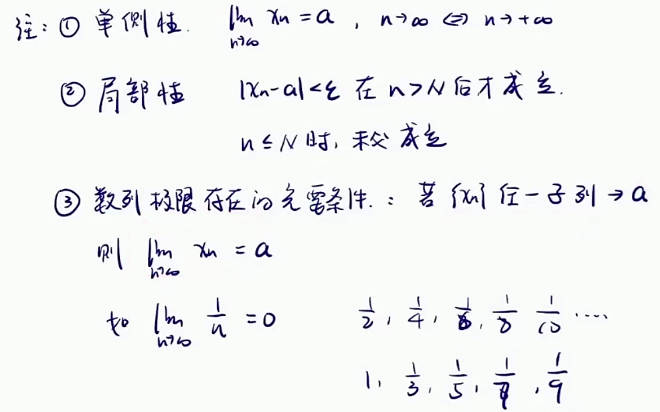 注：① 单侧性. lim_{n→∞} xn = a ，n→∞ ⇔ n→+∞
② 局部性 |xn-a|<ε 在 n>N 后才成立.
n≤N时，未必成立
③ 数列极限存在的充要条件.：若{xn}任一子列→a
则 lim_{n→∞} xn = a
如 lim_{n→∞} 1/n = 0 1/2, 1/4, 1/6, 1/8 1/10 ....
1, 1/3, 1/5, 1/7, 1/9